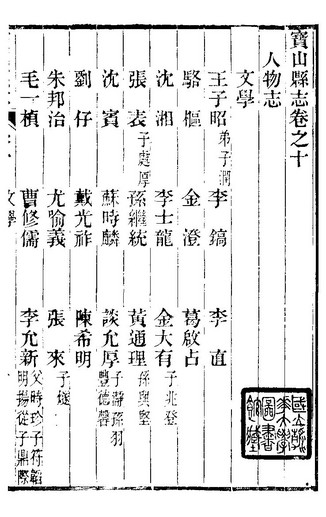 寶山縣志卷之十
人物志
文學
王子昭 弟子澗 李鎬 李直
駱樞 金澄 葛啟占
沈湘 李士龍 金大有 子兆登
張表 子處厚 孫繼統 黃通理 孫與堅
沈賓 蘇時麟 談允厚 子 孫羽豐德馨
劉仔 戴光祚 陳希明
朱邦治 尤喻義 張來 子燧
毛一楨 曹修儒 李允新 父時珍子符韜明揚從子鼎際
文學